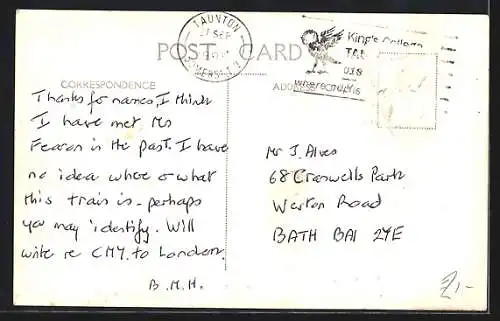 TAUNTON
SEP
SOMERSET
King's College
TAU
POST CARD
CORRESPONDENCE
ADDRESS
Thanks for names, I think
I have met Mrs
Fearon in the past. I have
no idea where or what
this train is - perhaps
you may identify. Will
write re CMY. to London.
B.M.H.
Mr J. Alves
68 Crosswells Park
Weston Road
BATH BA1 2YE
£1-